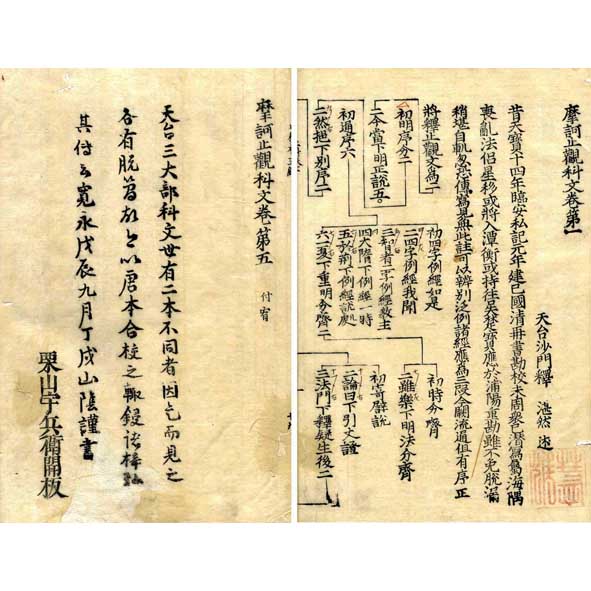 摩訶止觀科文卷第一
天台沙門釋 湛然 述
昔天寶十四年臨安私記元年建巳國清冊書勘校未周衆已潛寫屬海隅
喪亂法侶星移或將入潭衡或持往吳楚寶應於浦陽重勘雖不免脱漏
稍堪自軌忽恐傳寫見無此註可以辨別泛例諸經應為三段今闕流通但有序正
將釋止觀文為二
初明序分二
二今當下明正說五
初通序六
二然挹下別序二
初四字例經如是
二四字例經我聞
三智者二字例經教主
四大隋下例經一時
五於荊下例經說處
六一夏下重明分齊二
初時分齊
二雖樂下明法分齊
初寄辟說
二論曰下引文證
三法門下釋疑生後二
摩訶止觀科文卷第五
天台三大部科文世有二本不同者因乞而見之
各有脱 以唐本合校之輙鋟諸梓
其付云寬永戊辰九月丁戌山陰謹書
栗山宇兵衛開板